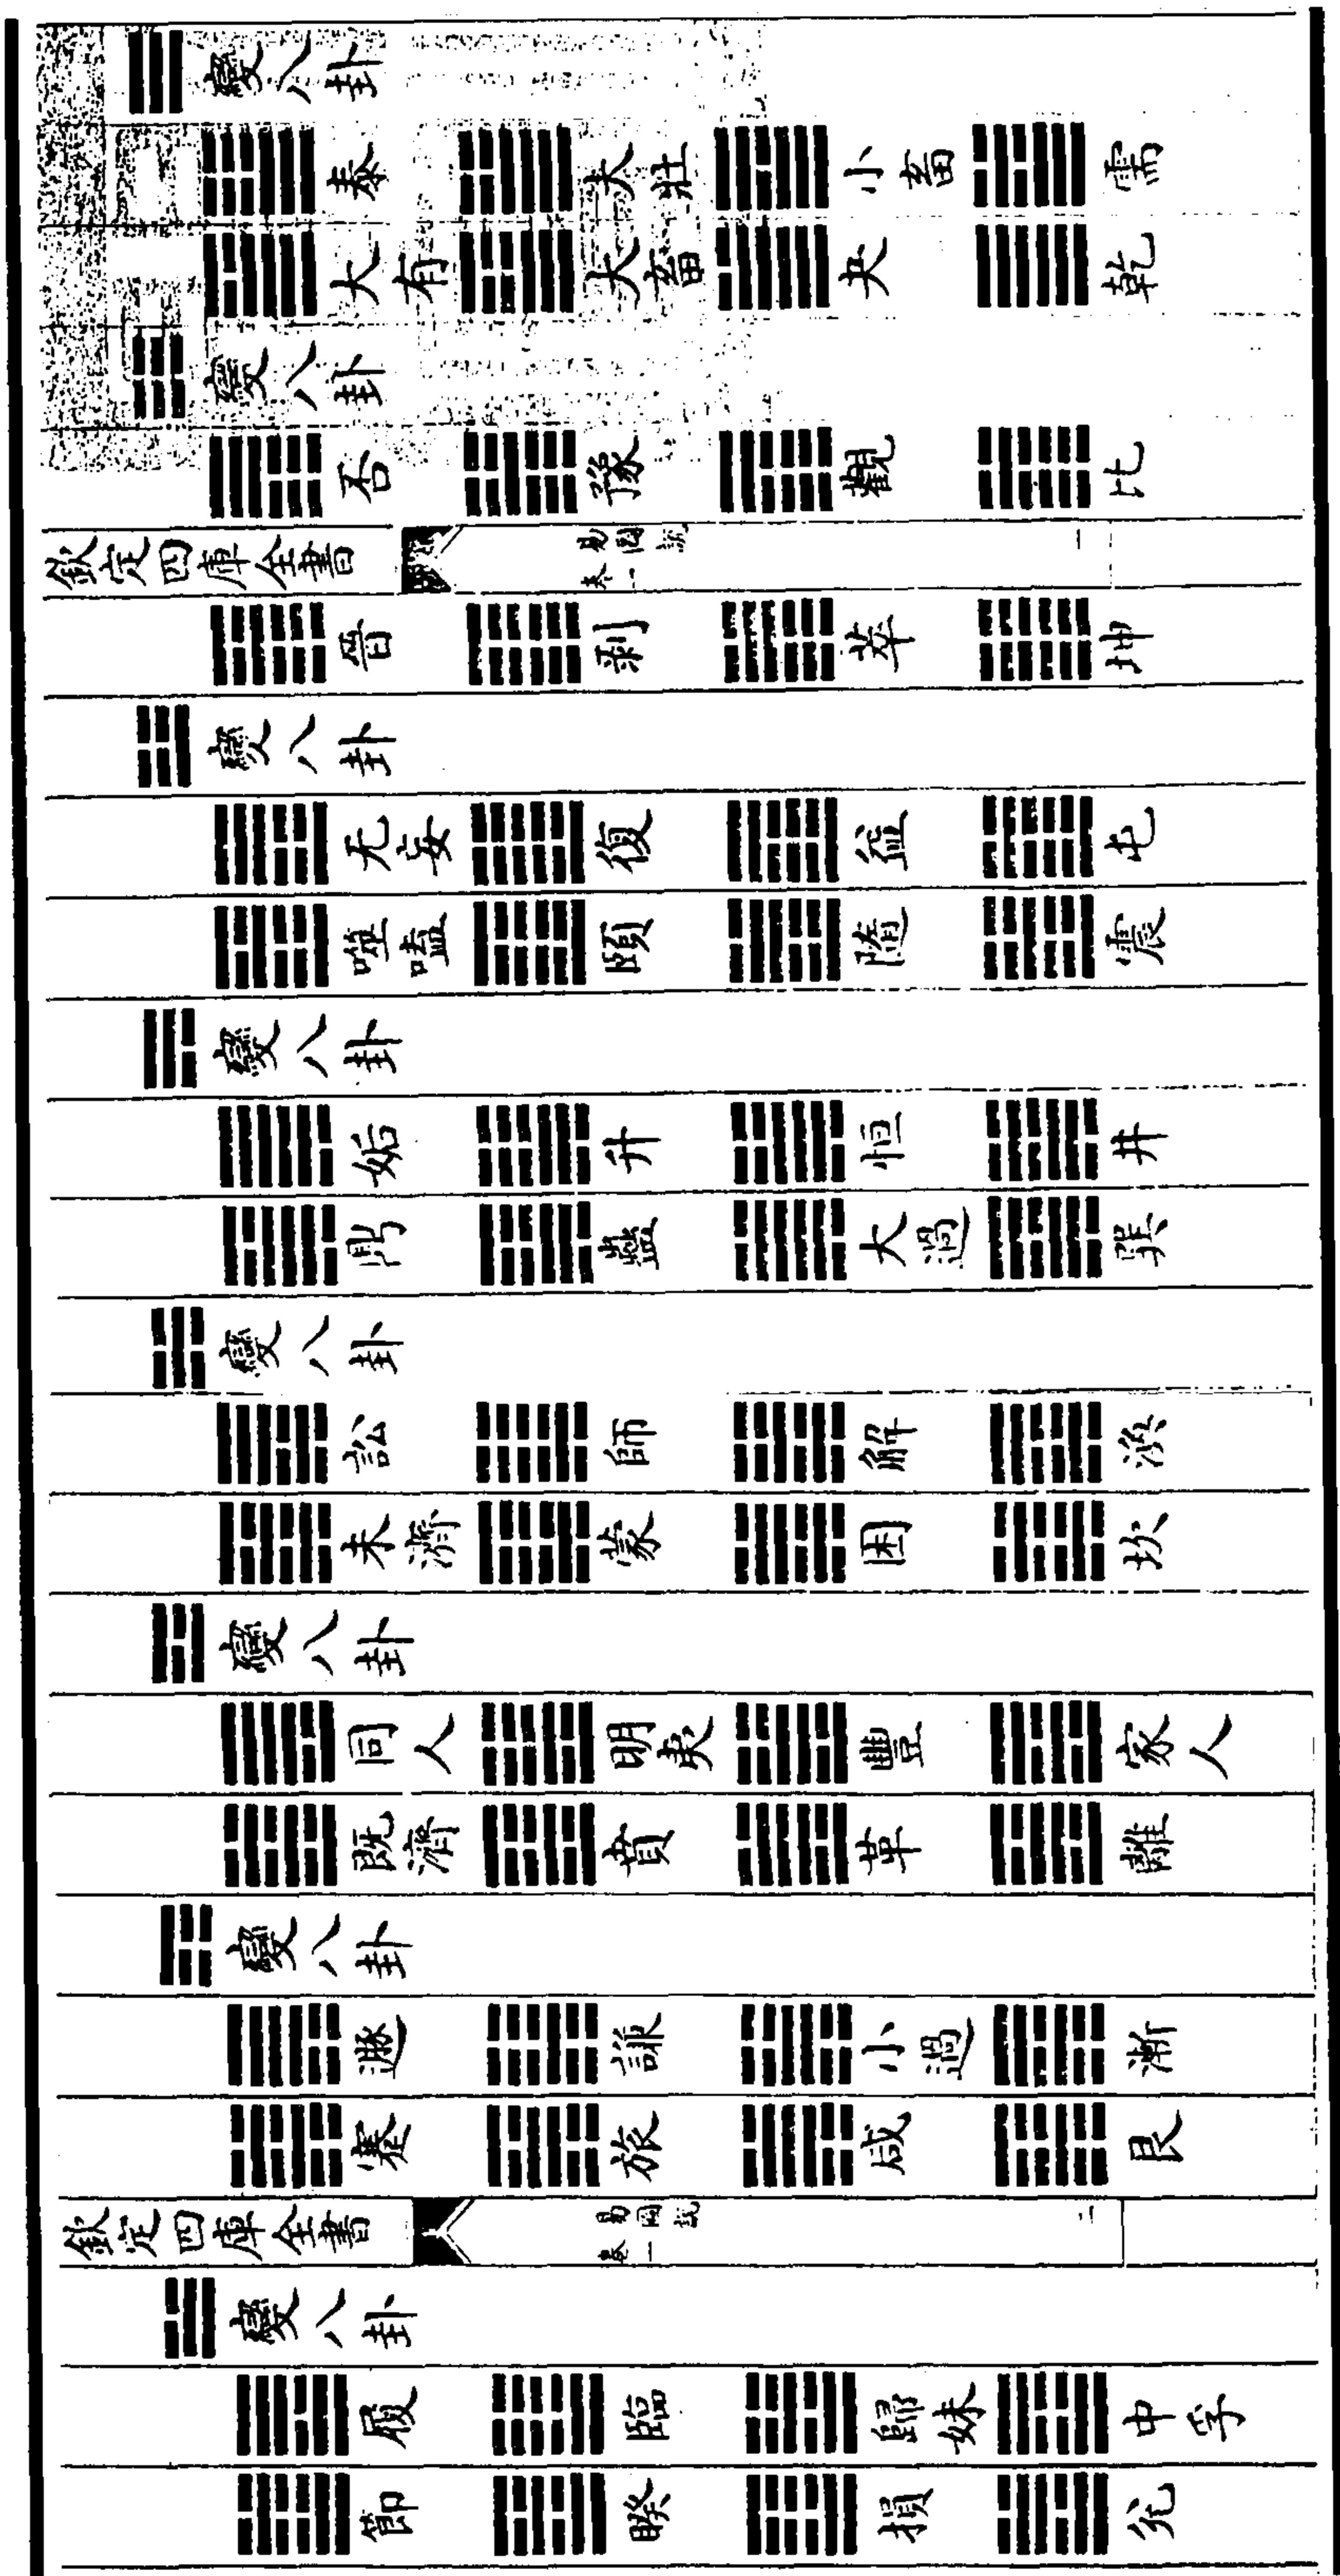 變八卦
泰 大壯 小畜 需
大有 大畜 夬 乾
變八卦
否 豫 觀 比
欽定四庫全書 易圖說 卷一 一
晉 剥 萃 坤
變八卦
无妄 復 益 屯
噬嗑 頤 隨 震
變八卦
姤 升 恒 井
鼎 蠱 大過 巽
變八卦
訟 師 解 渙
未濟 蒙 困 坎
變八卦
同人 明夷 豐 家人
既濟 賁 革 離
變八卦
遯 謙 小過 漸
蹇 旅 咸 艮
欽定四庫全書 易圖說 卷一 二
變八卦
履 臨 歸妹 中孚
節 睽 損 兊